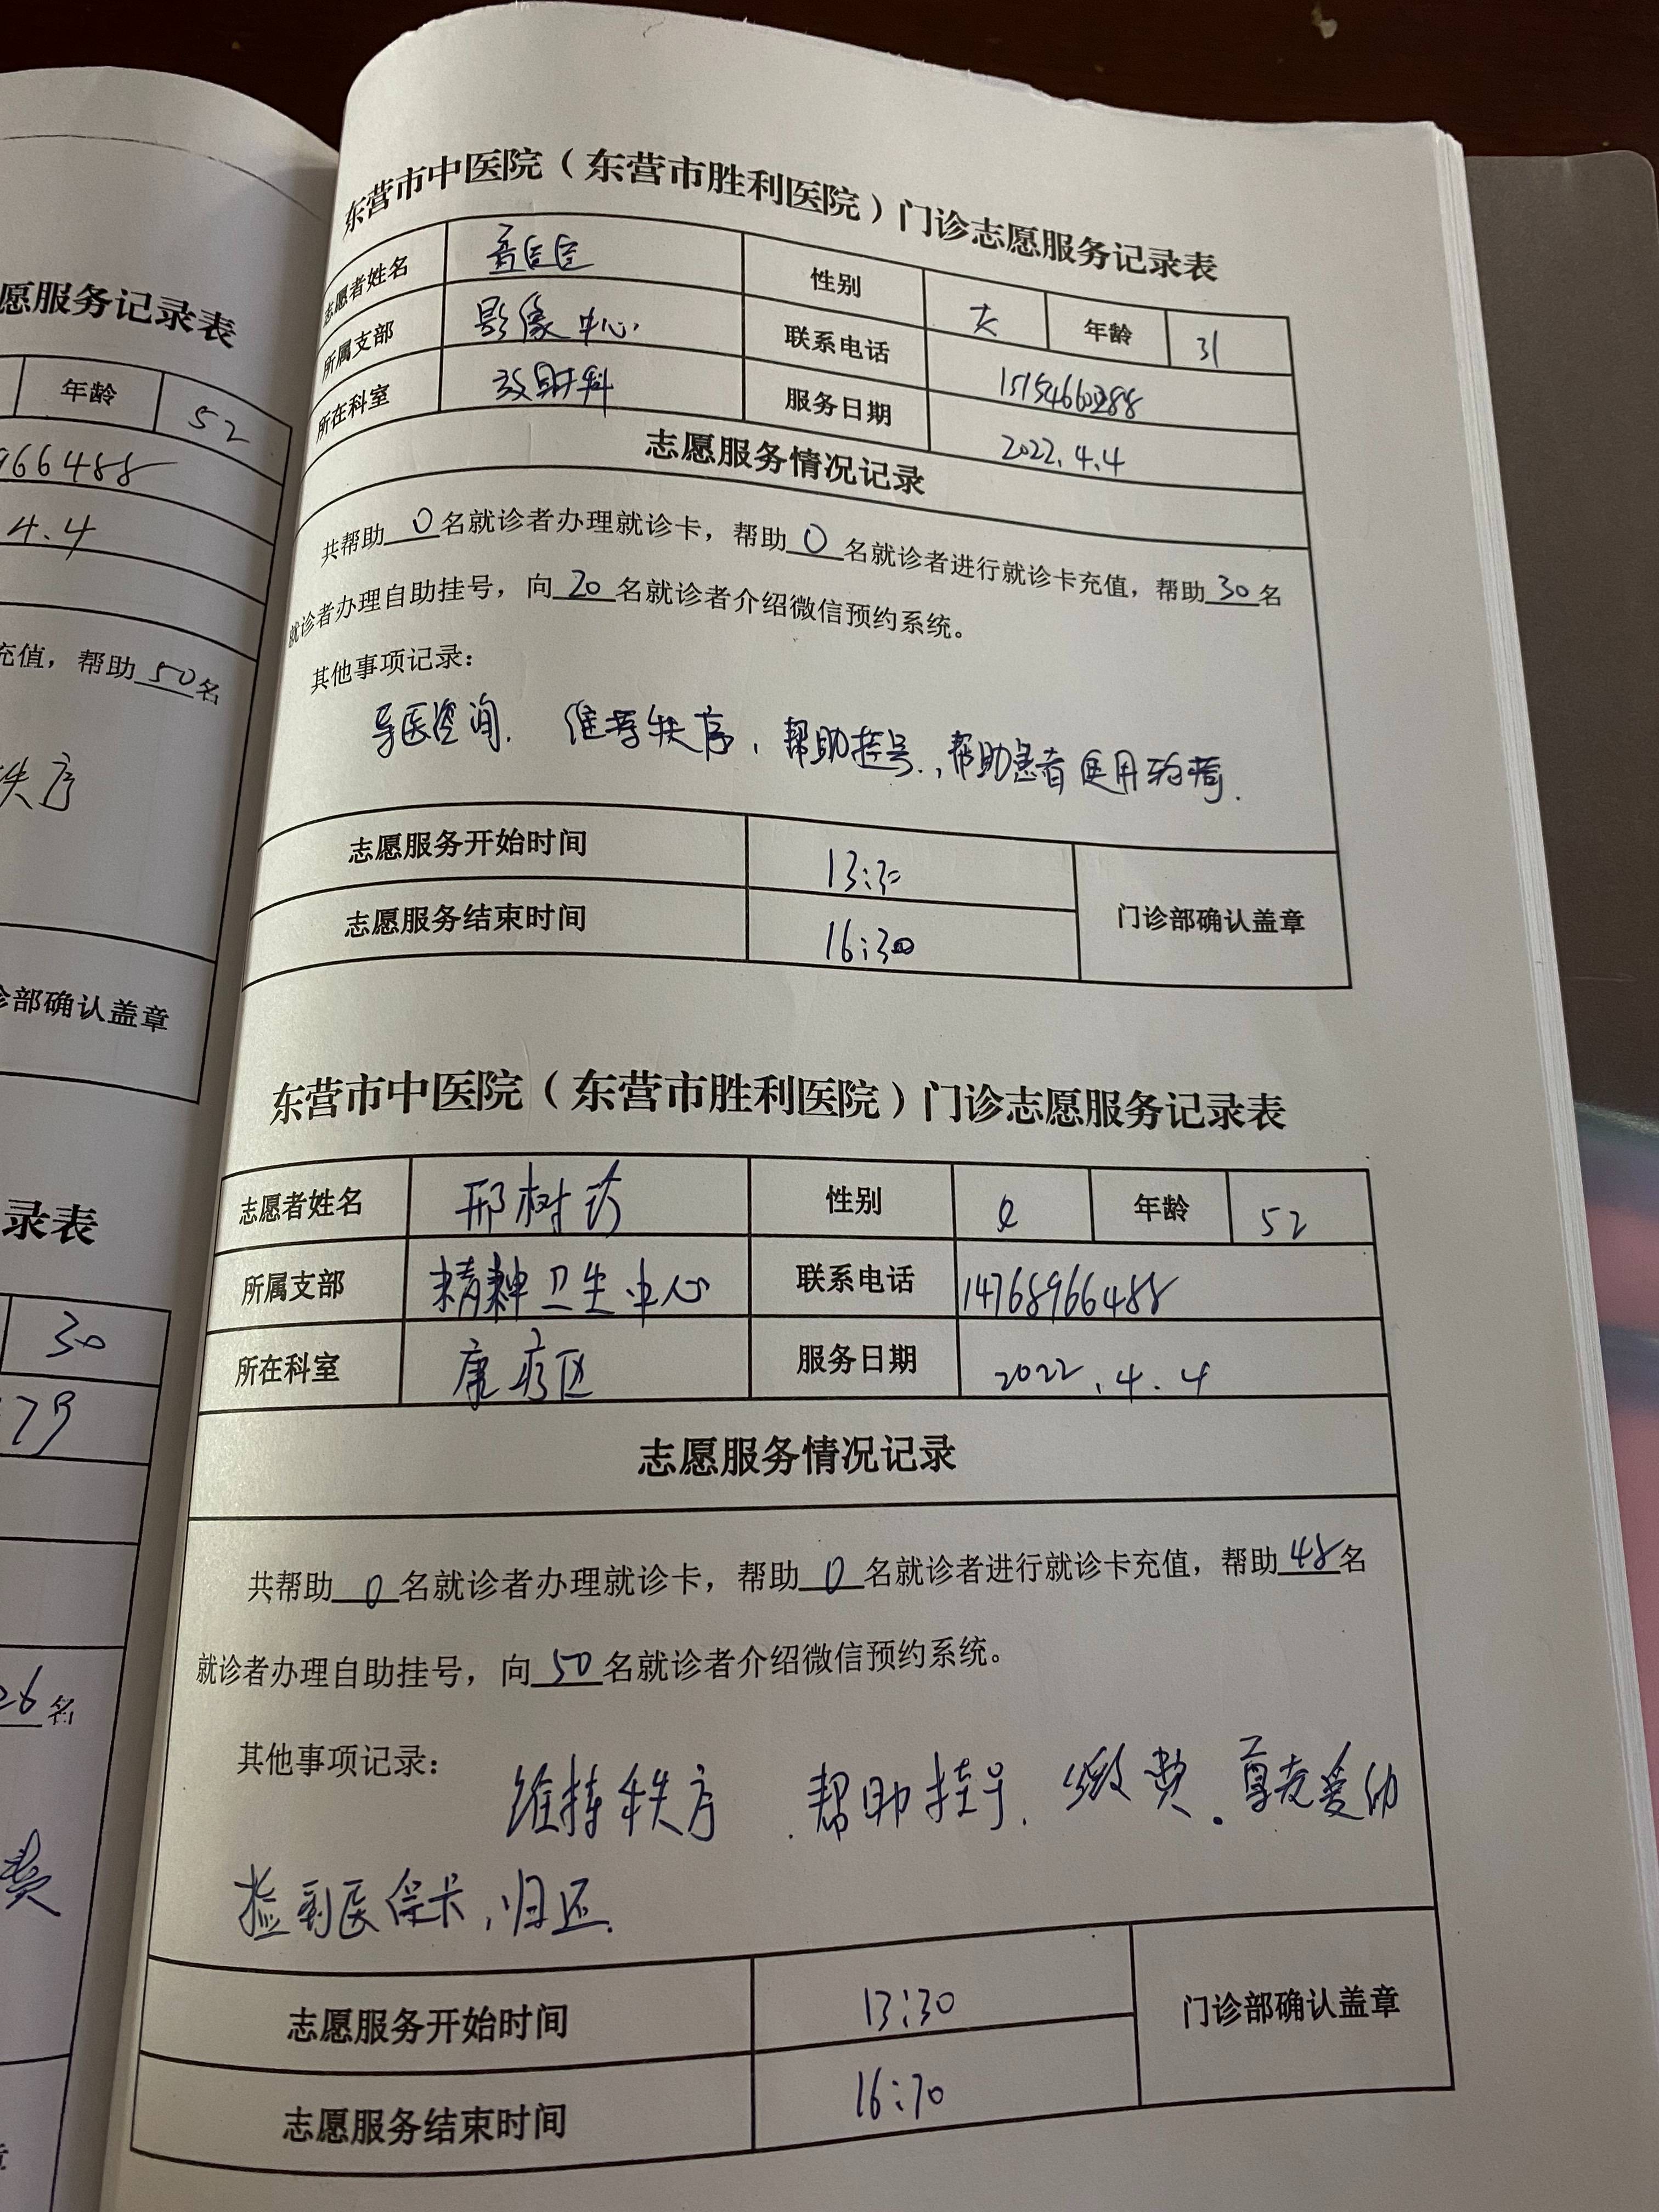 愿服务记录表
年龄 52
966488
4.4
充值，帮助50名
秩序
诊部确认盖章
录表
30
79
26名
费
东营市中医院（东营市胜利医院）门诊志愿服务记录表
志愿者姓名 性别 女 年龄 31
所属支部 影像中心 联系电话
所在科室 放射科 服务日期 2022.4.4
志愿服务情况记录
共帮助0名就诊者办理就诊卡，帮助0名就诊者进行就诊卡充值，帮助30名
就诊者办理自助挂号，向20名就诊者介绍微信预约系统。
其他事项记录：
导医咨询. 维持秩序, 帮助挂号., 帮助患者使用轮椅.
志愿服务开始时间 13:30
门诊部确认盖章
志愿服务结束时间 16:30
东营市中医院（东营市胜利医院）门诊志愿服务记录表
志愿者姓名 邢树芬 性别 女 年龄 52
所属支部 精神卫生中心 联系电话 14768966488
所在科室 康疗区 服务日期 2022.4.4
志愿服务情况记录
共帮助0名就诊者办理就诊卡，帮助0名就诊者进行就诊卡充值，帮助48名
就诊者办理自助挂号，向50名就诊者介绍微信预约系统。
其他事项记录：
维持秩序. 帮助挂号. 缴费. 尊老爱幼
捡到医保卡, 归还.
志愿服务开始时间 13:30
门诊部确认盖章
志愿服务结束时间 16:30